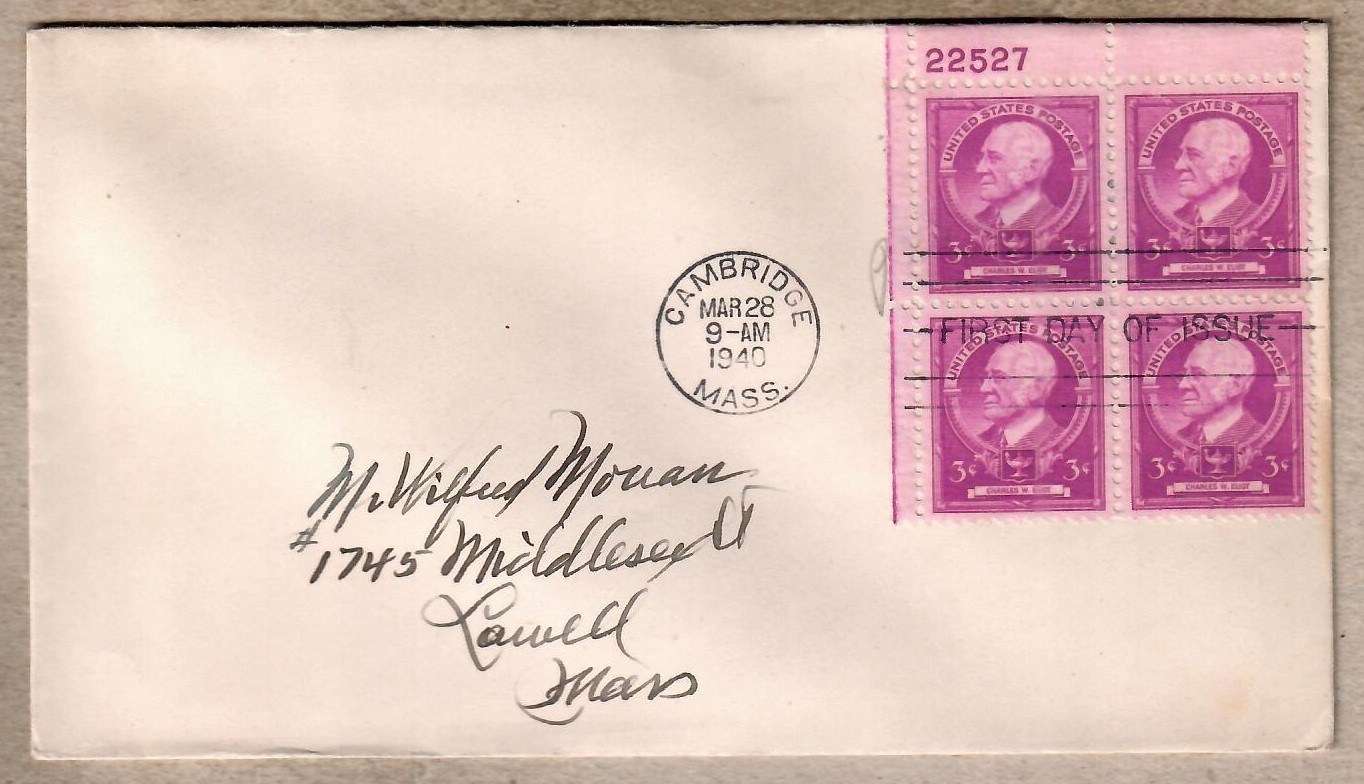 22527
UNITED STATES POSTAGE
3¢ 3¢
CHARLES W. ELIOT
UNITED STATES POSTAGE
3¢ 3¢
CHARLES W. ELIOT
CAMBRIDGE
MAR 28
9-AM
1940
MASS.
FIRST DAY OF ISSUE
UNITED STATES POSTAGE
3¢ 3¢
CHARLES W. ELIOT
UNITED STATES POSTAGE
3¢ 3¢
CHARLES W. ELIOT
Mr Wilfred
#1745 Middlesex St
Lowell
Mass